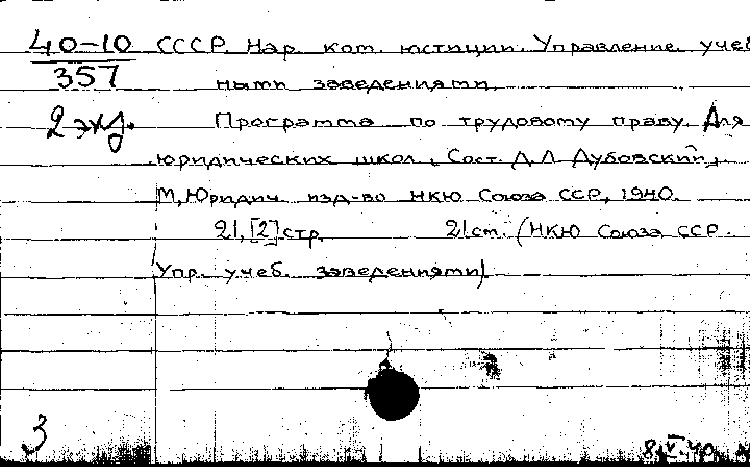 40-10
357
2 экз.
СССР. Нар. ком. юстиции. Управление учеб
ными заведениями.
Программа по трудовому праву. Для
юридических школ. Сост. Д.Л. Дубовский.
М, Юридич. изд-во НКЮ Союза ССР, 1940.
21, [2] стр. 21 см. (НКЮ Союза ССР.
Упр. учеб. заведениями)
3
8.V.40